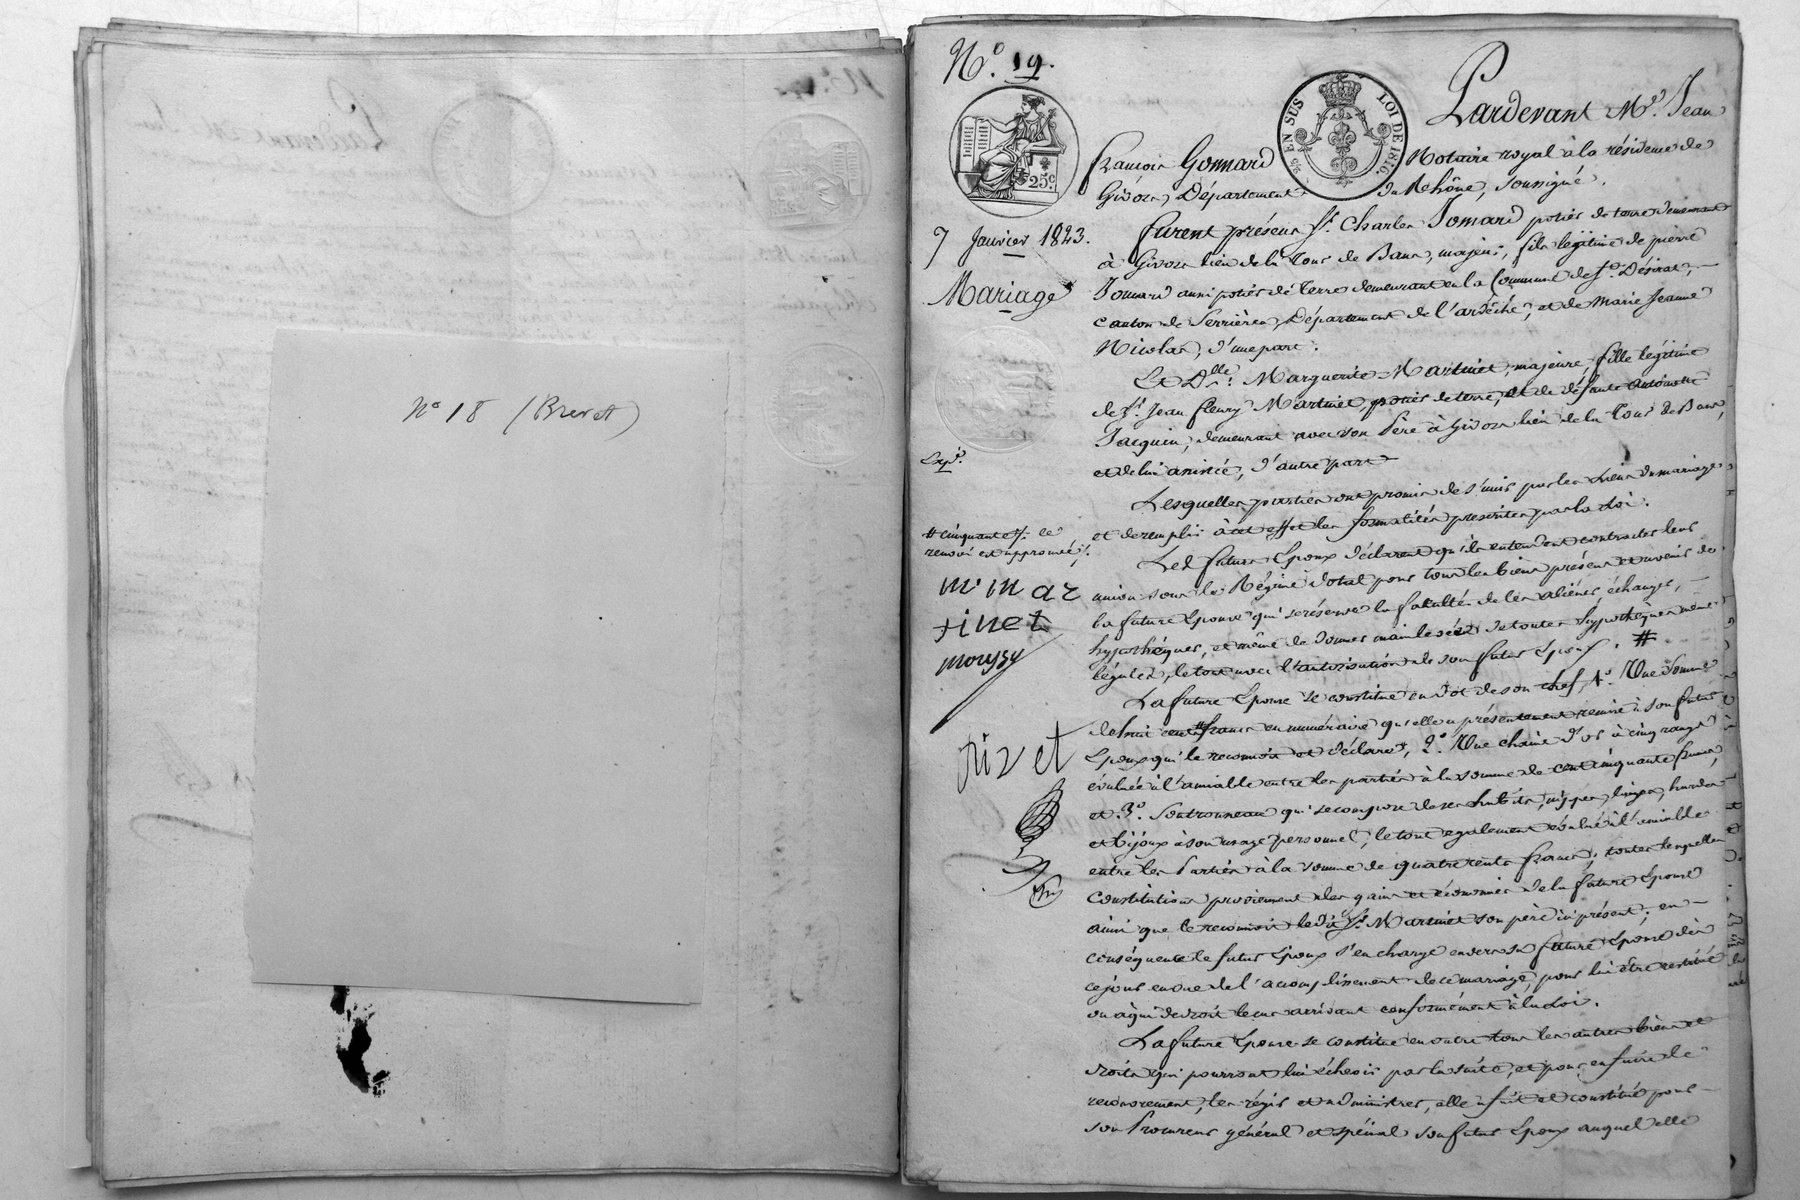 N° 18 (Brevet)
N°. 19.
25c.
EN SUS
LOI DE 1816.
7 Janvier 1823.
Mariage
Exp.
# cinquante /. ce
renvoi est approuvé /.
m mar
tinet
mouzy
rivet
Pardevant Me. Jean
francois Gonnard Notaire royal à la résidence de
Givors, Département du Rhône, soussigné.
furent présens Sr. Charles Jomard potier de terre demeurant
à Givors lieu de la Tour de Bans, majeur, fils légitime de pierre
Jomard aussi potier de terre demeurant en la Commune de St. Désirat,
canton de Serrières, Département de l'ardèche, et de Marie Jeanne
Nicolas, d'une part.
Et Dlle. Marguerite Martinet, majeure, fille légitime
de Sr. Jean fleury Martinet, potier de terre, et de défunte Antoinette
Jacquin, demeurant avec son Père à Givors lieu de la Tour de Bans,
et de lui assistée, d'autre part
Lesquelles parties ont promis de s'unir par les liens du mariage
et de remplir à cet effet les formalités prescrites par la Loi.
Les futurs Epoux déclarent qu'ils entendent contracter leur
union sous le Régime dotal pour tous les biens présens et avenir de
la future Epouse qui se réserve la faculté de les aliéner, échanger,
hypothéquer, et même de donner mainlevée de toutes hypothèques même
légales, le tout avec l'autorisation de son futur Epoux. #
La future Epouse se constitue en dot de son chef, 1°. Une Somme
de huit cent # francs en numéraire qu'elle a présentement remise à son futur
Epoux qui le reconnoit et déclare, 2°. Une chaine d'or à cinq rangs,
évaluée à l'amiable entre les parties à la somme de cent cinquante francs,
et 3°. Son trousseau qui se compose de ses habits, nippes, linges, hardes
et bijoux à son usage personnel, le tout également évalué à l'amiable
entre les Parties à la somme de quatre cents francs; toutes lesquelles
constitutions proviennent des gains et économies de la future Epouse
ainsi que le reconnoit le dit Sr. Martinet son père ici présent; en
conséquence le futur Epoux s'en charge envers sa future Epouse dès
ce jour en vue de l'accomplissement de ce mariage, pour lui être restitué
ou à qui de droit le cas arrivant conformément à la Loi.
La future Epouse se constitue en outre tous les autres biens et
droits qui pourront lui échoir par la suite, et pour en faire le
recouvrement, les régir et administrer, elle a fait et constitué pour
son Procureur général et spécial son futur Epoux auquel elle